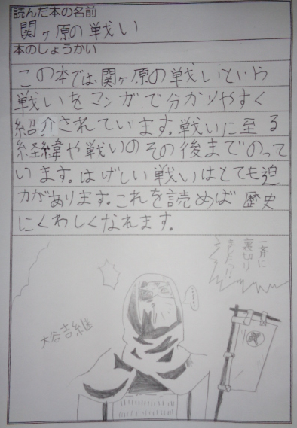 読んだ本の名前
関ヶ原の戦い
本のしょうかい
この本では関ヶ原の戦いという
戦いをマンガで分かりやすく
紹介されています。戦いに至る
経緯や戦いのその後までのって
います。はげしい戦いはとても迫
力があります。これを読めば歴史
にくわしくなれます。
一斉に
裏切り
大谷吉継